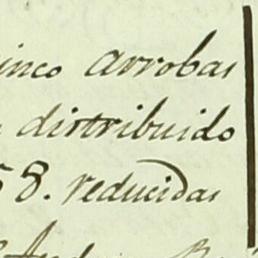 inco arrobas
distribuido
58. reducidas